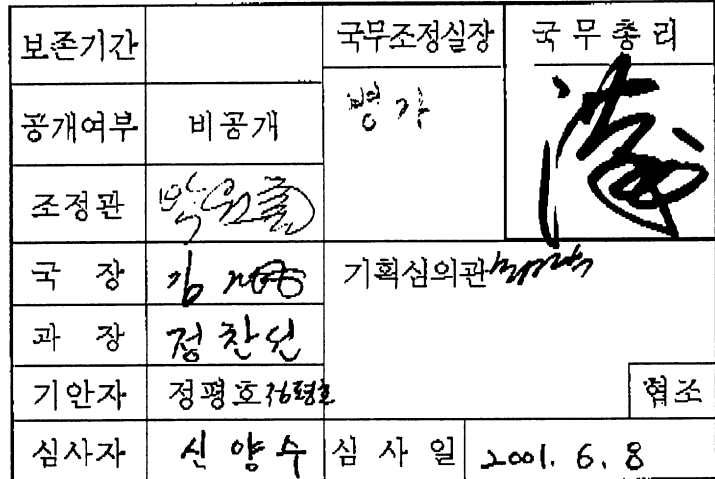 보존기간
국무조정실장
국무총리
공개여부
비공개
조정관
박
국 장
김
기획심의관
과 장
정찬선
기안자
정평호
협조
심사자
신양수
심 사 일
2001. 6. 8